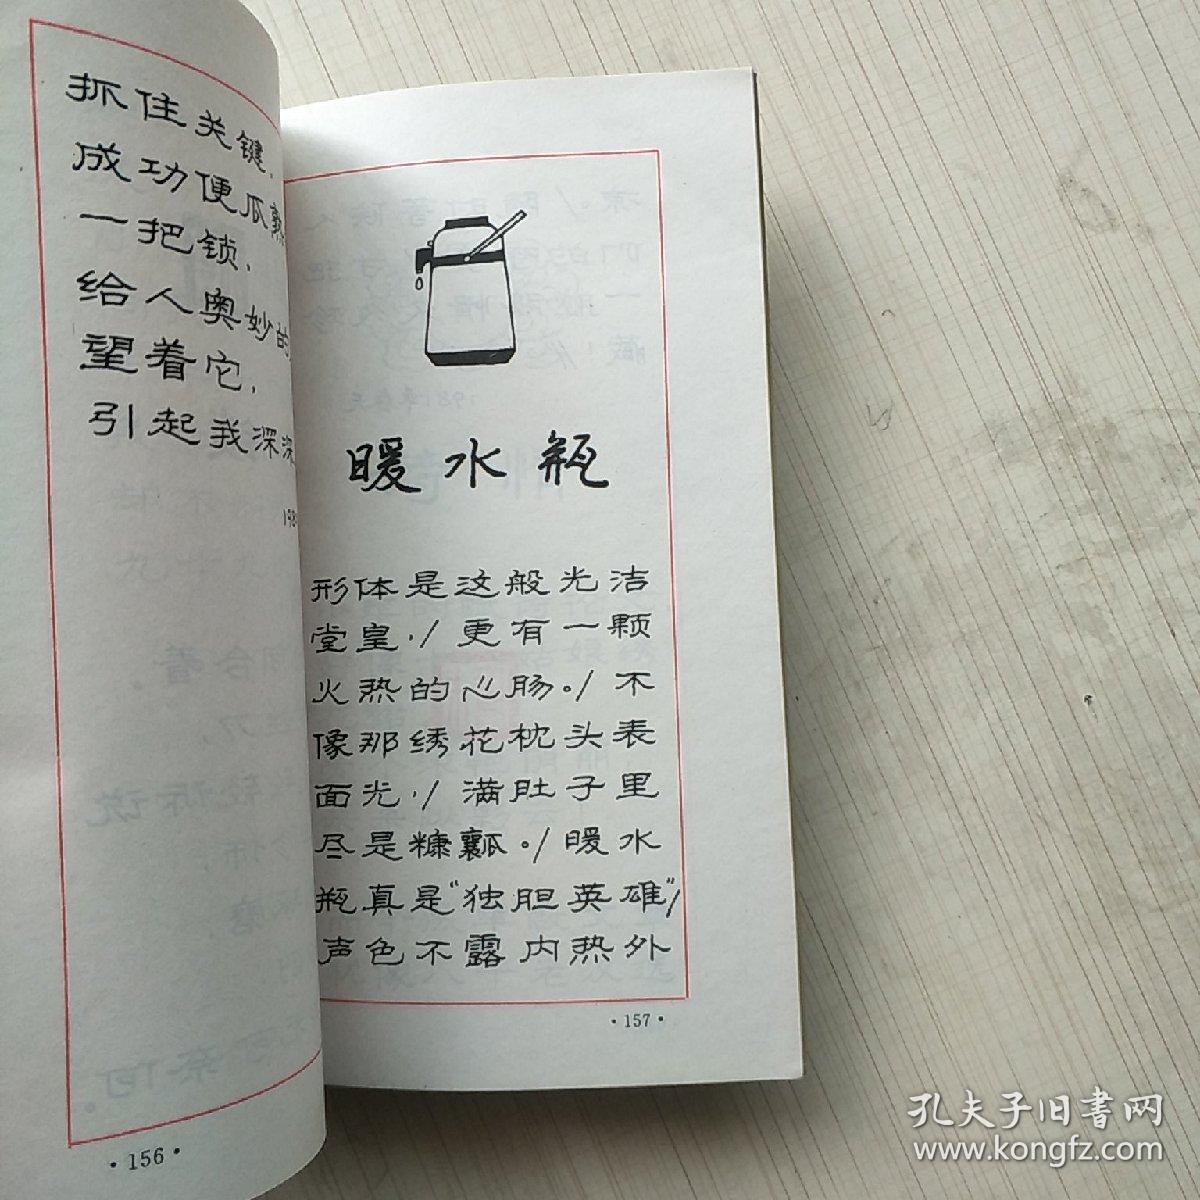 抓住关键，
成功便瓜熟
一把锁，
给人奥妙的
望着它，
引起我深深
198
·156·
暖水瓶
形体是这般光洁
堂皇，/更有一颗
火热的心肠。/不
像那绣花枕头表
面光，/满肚子里
尽是糠瓤。/暖水
瓶真是“独胆英雄”/
声色不露内热外
·157·
孔夫子旧书网
www.kongfz.com